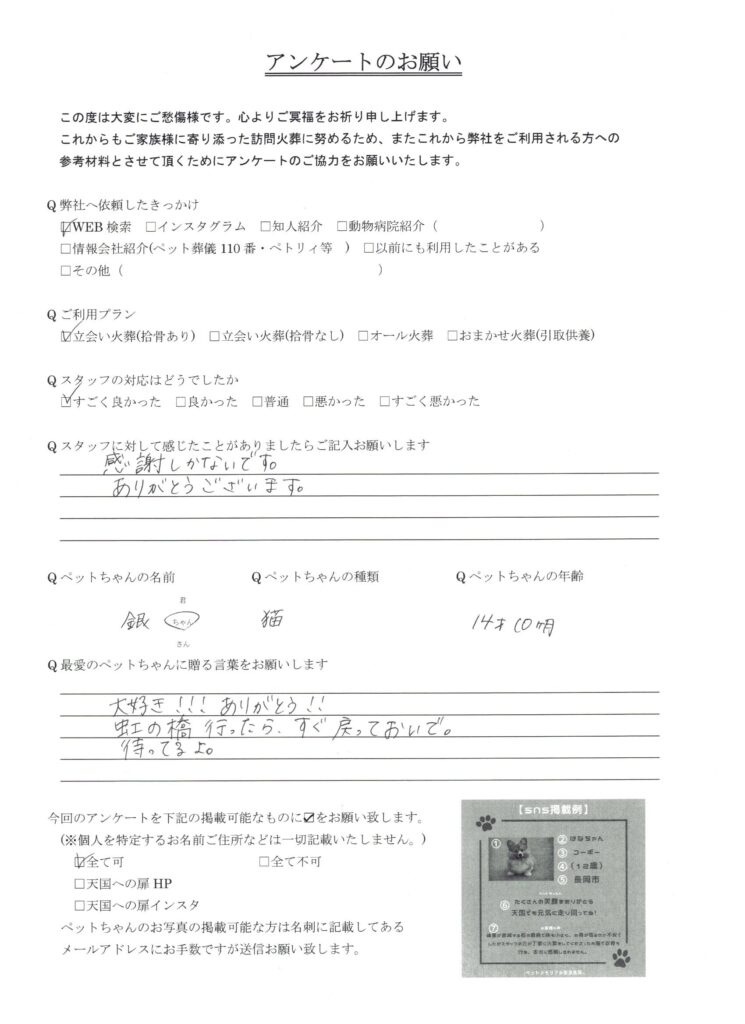 アンケートのお願い
この度は大変にご愁傷様です。心よりご冥福をお祈り申し上げます。
これからもご家族様に寄り添った訪問火葬に努めるため、またこれから弊社をご利用される方への
参考材料とさせて頂くためにアンケートのご協力をお願いいたします。
Q 弊社へ依頼したきっかけ
☑WEB 検索 □インスタグラム □知人紹介 □動物病院紹介（ ）
□情報会社紹介(ペット葬儀 110 番・ペトリィ等 ) □以前にも利用したことがある
□その他（ ）
Q ご利用プラン
☑立会い火葬(拾骨あり) □立会い火葬(拾骨なし) □オール火葬 □おまかせ火葬(引取供養)
Q スタッフの対応はどうでしたか
☑すごく良かった □良かった □普通 □悪かった □すごく悪かった
Q スタッフに対して感じたことがありましたらご記入お願いします
感謝しかないです。
ありがとうございます。
Q ペットちゃんの名前 Q ペットちゃんの種類 Q ペットちゃんの年齢
君
銀 ちゃん 猫 14才10ヶ月
さん
Q 最愛のペットちゃんに贈る言葉をお願いします
大好き!!! ありがとう!!
虹の橋 行ったら、すぐ戻っておいで。
待ってるよ。
今回のアンケートを下記の掲載可能なものに☑をお願い致します。
(※個人を特定するお名前ご住所などは一切記載いたしません。)
☑全て可 □全て不可
□天国への扉 HP
□天国への扉インスタ
ペットちゃんのお写真の掲載可能な方は名刺に記載してある
メールアドレスにお手数ですが送信お願い致します。
【sns掲載例】
① ② はなちゃん
③ コーギー
④ （12歳）
⑤ 長岡市
⑥ たくさんの笑顔をありがとう
天国でも元気に走り回ってね！
⑦